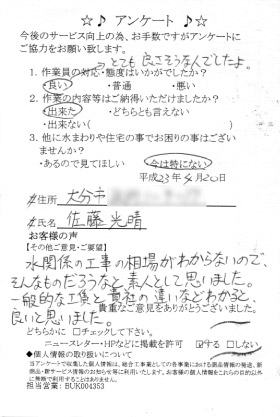 ☆♪ アンケート ♪☆
今後のサービス向上の為、お手数ですがアンケートに
ご協力をお願い致します。
とても良さそうなんでしたよ。
1. 作業員の対応・態度はいかがでしたか?
・良い ・普通 ・悪い
2. 作業の内容等はご納得いただけましたか?
・出来た ・どちらとも言えない
・出来ない( )
3. 他に水まわりや住宅の事でお困りの事はござい
ませんか?
・あるので見てほしい ・今は特にない
平成23年4月20日
ご住所 大分市
ご氏名 佐藤光晴
お客様の声
【その他ご意見・ご要望】
水関係の工事の相場がわからないので、
そんなものだろうなと素人として思いました。
一般的な工賃と貴社の違いなどわかると、
良いと思いました。
貴重なご意見をありがとうございました。
どちらかに☐チェックして下さい。
ニュースレター・HPなどに掲載を許可 ☑する ☐しない
●個人情報の取り扱いについて
当アンケートで収集した個人情報は、総合工事業としての各事業における商品情報の発送、新
商品・新サービス情報のお知らせ等に利用いたします。お客様の個人情報をこれらの目的以外
に無断で利用することはありません。
担当営業: BUK004353